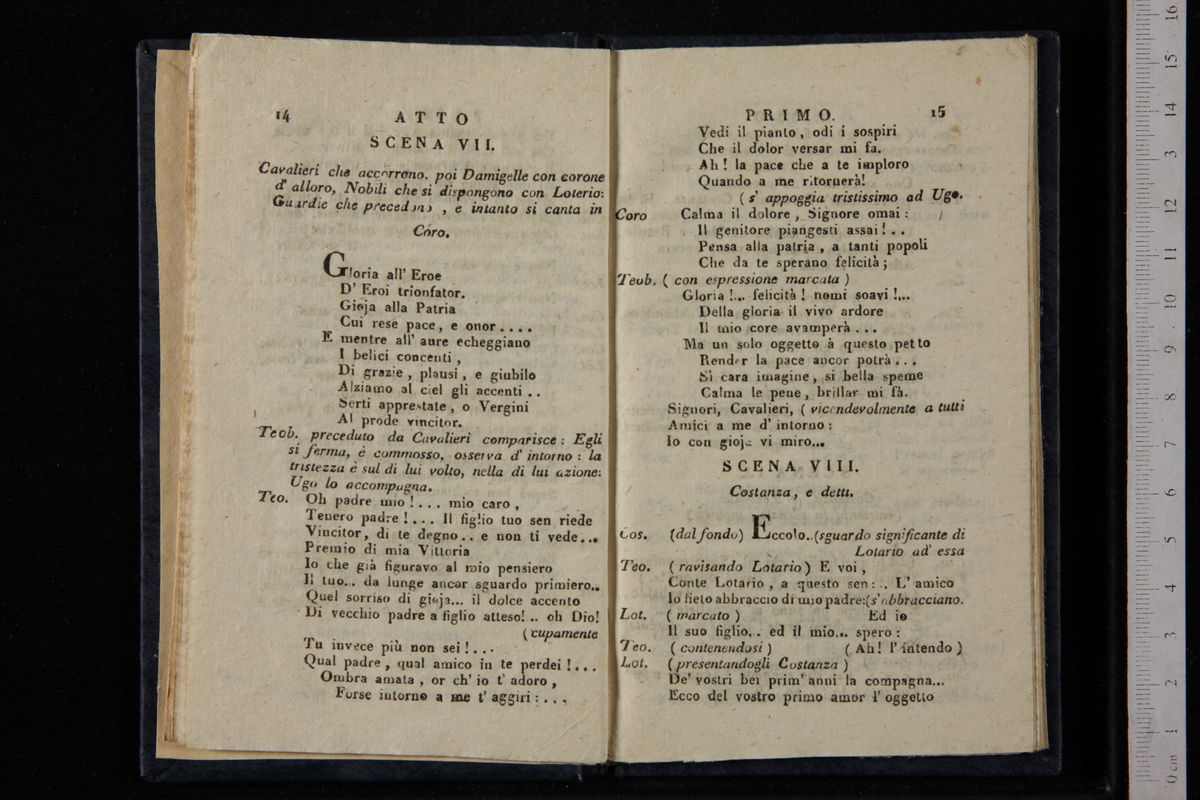 14 ATTO
SCENA VII.
Cavalieri che accorrono. poi Damigelle con corone
d' alloro, Nobili che si dispongono con Loterio:
Guardie che precedono , e intanto si canta in
Coro.
Gloria all' Eroe
D' Eroi trionfator.
Gioja alla Patria
Cui rese pace, e onor . . . .
E mentre all' aure echeggiano
I belici concenti ,
Di grazie , plausi , e giubilo
Alziamo al ciel gli accenti . .
Serti apprestate , o Vergini
Al prode vincitor.
Teob. preceduto da Cavalieri comparisce : Egli
si ferma, è commosso, osserva d' intorno : la
tristezza è sul di lui volto, nella di lui azione:
Ugo lo accompagna.
Teo. Oh padre mio ! . . . mio caro ,
Tenero padre ! . . . Il figlio tuo sen riede
Vincitor, di te degno . . e non ti vede . . .
Premio di mia Vittoria
Io che già figuravo al mio pensiero
Il tuo... da lunge ancor sguardo primiero..
Quel sorriso di gioja... il dolce accento
Di vecchio padre a figlio atteso! .. oh Dio!
( cupamente
Tu invece più non sei ! . . .
Qual padre , qual amico in te perdei ! . . .
Ombra amata , or ch' io t' adoro ,
Forse intorno a me t' aggiri : . . .
PRIMO. 15
Vedi il pianto , odi i sospiri
Che il dolor versar mi fa.
Ah ! la pace che a te imploro
Quando a me ritornerà!
( s' appoggia tristissimo ad Ugo.
Coro Calma il dolore , Signore omai :
Il genitore piangesti assai ! . .
Pensa alla patria , a tanti popoli
Che da te sperano felicità ;
Teob. ( con espressione marcata )
Gloria !... felicità ! nomi soavi !...
Della gloria il vivo ardore
Il mio core avamperà . . .
Ma un solo oggetto à questo petto
Render la pace ancor potrà . . .
Sì cara imagine , si bella speme
Calma le pene , brillar mi fà.
Signori, Cavalieri, ( vicendevolmente a tutti
Amici a me d' intorno :
Io con gioja vi miro...
SCENA VIII.
Costanza , e detti.
Cos. (dal fondo) Eccolo..(sguardo significante di
Lotario ad essa
Teo. ( ravisando Lotario ) E voi ,
Conte Lotario , a questo sen : . . L' amico
Io lieto abbraccio di mio padre:(s'abbracciano.
Lot. ( marcato ) Ed io
Il suo figlio. . ed il mio... spero :
Teo. ( contenendosi ) ( Ah ! l' intendo )
Lot. ( presentandogli Costanza )
De' vostri bei prim' anni la compagna...
Ecco del vostro primo amor l' oggetto
0 cm 1 2 3 4 5 6 7 8 9 10 11 12 13 14 15 16